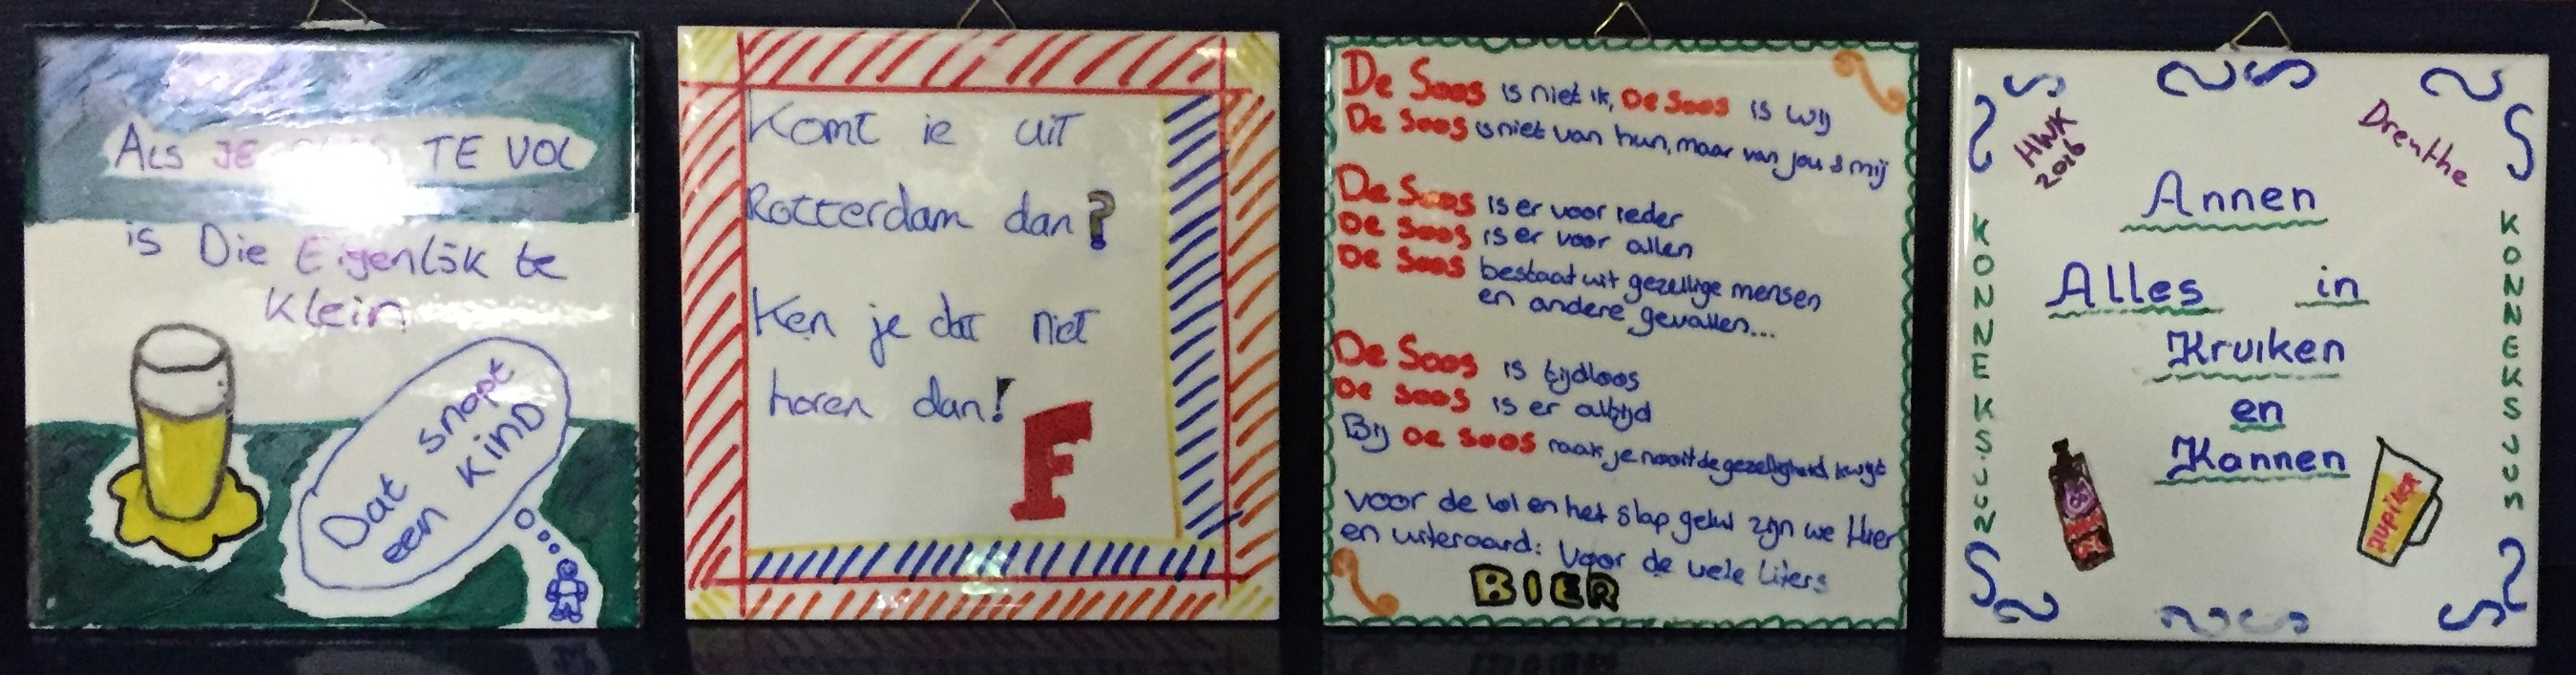 ALS JE TE VOL
is Die Eigenlijk te
Klein
Dat snapt
een KinD
Komt ie uit
Rotterdam dan?
Ken je dat niet
horen dan!
F
De Soos is niet ik, De Soos is wij
De Soos is niet van hun, maar van jou & mij
De Soos is er voor ieder
De Soos is er voor allen
De Soos bestaat uit gezellige mensen
en andere gevallen...
De Soos is tijdloos
De Soos is er altijd
Bij De Soos raak je nooit de gezelligheid kwijt
Voor de lol en het slap gelul zijn we Hier
en uiteraard: Voor de vele liters
BIER
HWK
2016
Drenthe
Annen
Alles in
Kruiken
en
Kannen
KONNEKSJUN
KONNEKSJUN
Jupiler